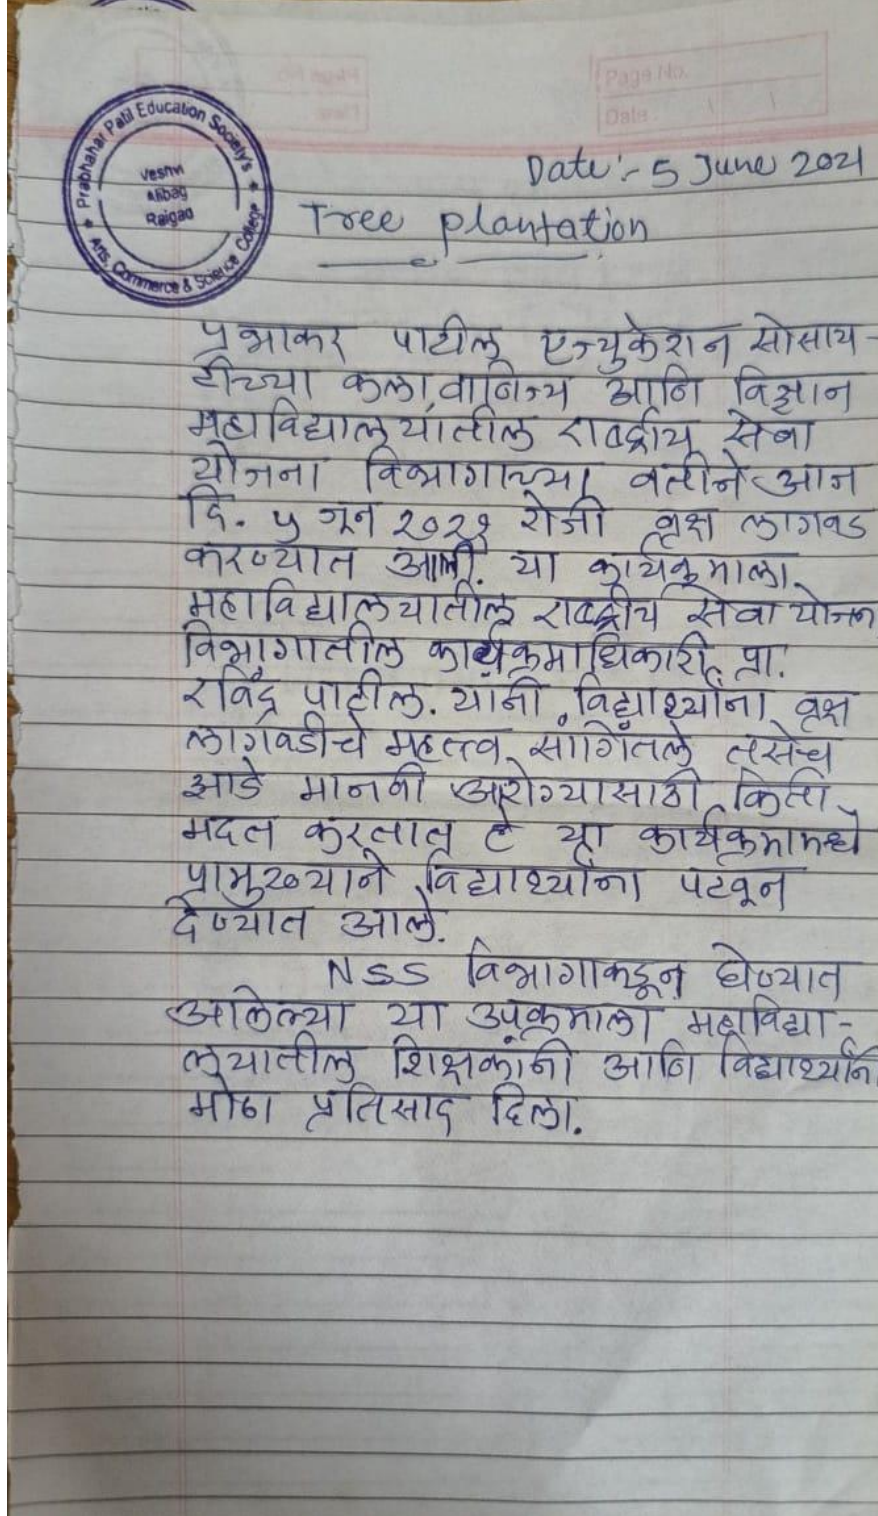 Page No.
Date
Prabhakar Patil Education Society's
Arts, Commerce & Science College
Veshvi
Alibag
Raigad
Date :- 5 June 2021
Tree plantation
प्रभाकर पाटील एज्युकेशन सोसाय-
टीच्या कला, वाणिज्य आणि विज्ञान
महाविद्यालयातील राष्ट्रीय सेवा
योजना विभागाच्या वतीने आज
दि. ५ जून २०२१ रोजी वृक्ष लागवड
करण्यात आली. या कार्यक्रमाला
महाविद्यालयातील राष्ट्रीय सेवा योजना
विभागातील कार्यक्रमाधिकारी प्रा.
रविंद्र पाटील. यांनी विद्यार्थ्यांना वृक्ष
लागवडीचे महत्त्व सांगितले तसेच
झाडे मानवी आरोग्यासाठी किती
मदत करतात हे या कार्यक्रमामध्ये
प्रामुख्याने विद्यार्थ्यांना पटवून
देण्यात आले.
NSS विभागाकडून घेण्यात
आलेल्या या उपक्रमाला महाविद्या-
लयातील शिक्षकांनी आणि विद्यार्थ्यांनी
मोठा प्रतिसाद दिला.